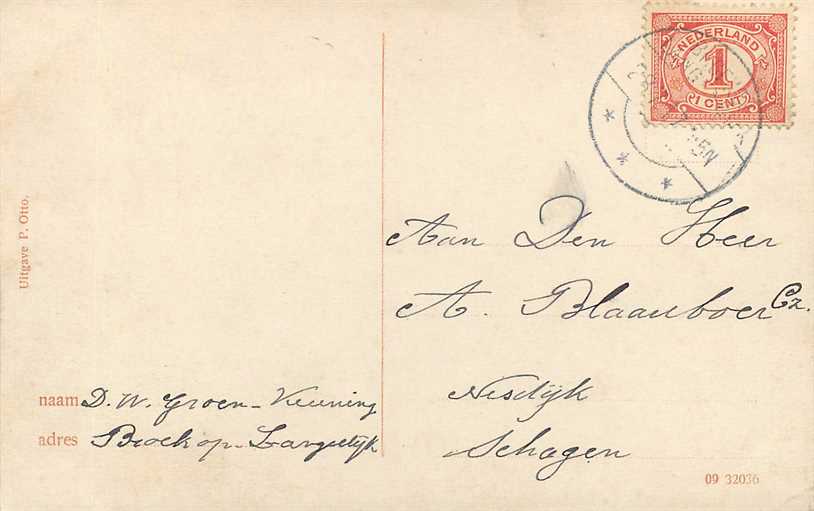 NEDERLAND
1
1 CENT
Aan Den Heer
A. Blaauboer Cz.
Nesdijk
Schagen
Uitgave P. Otto.
naam D. W. Groen-Kuining
adres Broek op Langedijk
09 32036